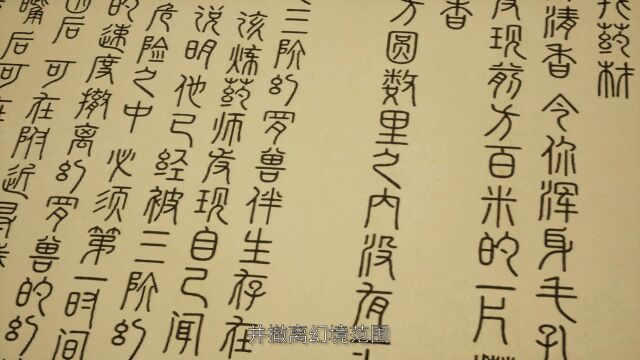 找药材
清香 令你浑身毛孔
发现前方百米的一片
香
方圆数里之内没有
三阶幻罗兽伴生存在
该炼药师发现自己闻
说明他已经被三阶幻
危险之中 必须第一时间
的速度撤离幻罗兽的幻
后 可在附近寻
嘴后可在
并撤离幻境范围